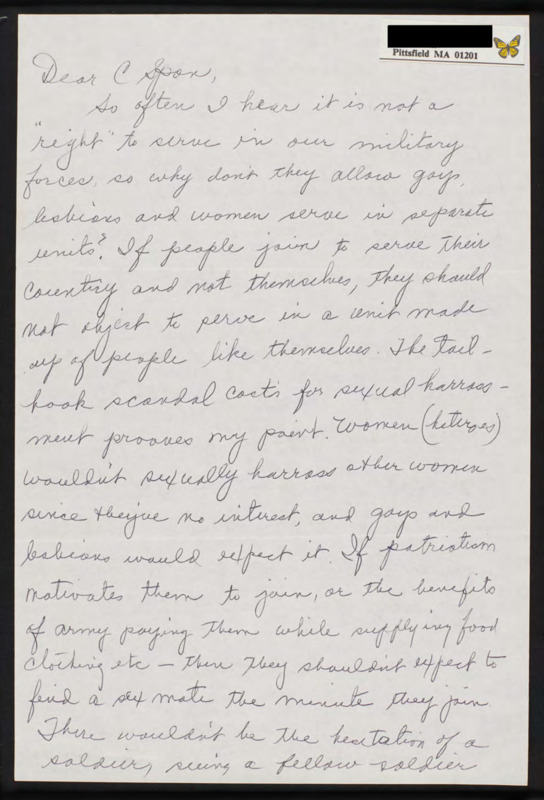 Pittsfield MA 01201
Dear C Span,
So often I hear it is not a
"right" to serve in our military
forces, so why don't they allow gays,
lesbians and women serve in separate
units? If people join to serve their
country and not themselves, they should
not object to serve in a unit made
up of people like themselves. The Tail-
hook scandal costs for sexual harrass-
ment prooves my point. Women (heteros)
wouldn't sexually harrass other women
since they've no interest, and gays and
lesbians would expect it. If patriotism
motivates them to join, or the benefits
of army paying them while supplying food
clothing etc — then they shouldn't expect to
find a sex mate the minute they join.
There wouldn't be the hesitation of a
soldier, seeing a fellow soldier